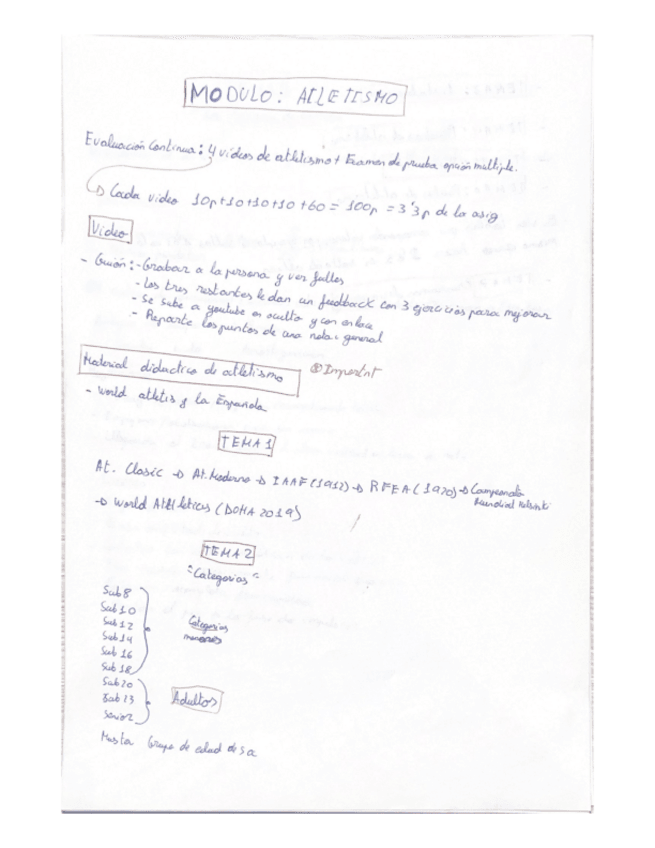 MODULO: ATLETISMO
Evaluación Continua: 4 videos de atletismo + Examen de prueba opción multiple.
→ Cada video 10p+10+10+10+60 = 100p = 3'3p de la asig
Video
- Guión: - Grabar a la persona y ver fallos
- Los tres restantes le dan un feedback con 3 ejercicios para mejorar
- Se sube a youtube en oculto y con enlace
- Reparte los puntos de una nota general
Material didactico de atletismo
Important
- World atletis y la Española
TEMA 1
At. Clasic → At. Moderno → IAAF (1912) → RFEA (1920) → Campeonato
Mundial Helsinki
→ World Athleticus (DOHA 2019)
TEMA 2
"Categorias"
Sub 8
Sub 10
Sub 12
Sub 14
Sub 16
Sub 18
Categorias
menores
Sub 20
Sub 23
Senior
Adultos
Master Grupo de edad de 5 a